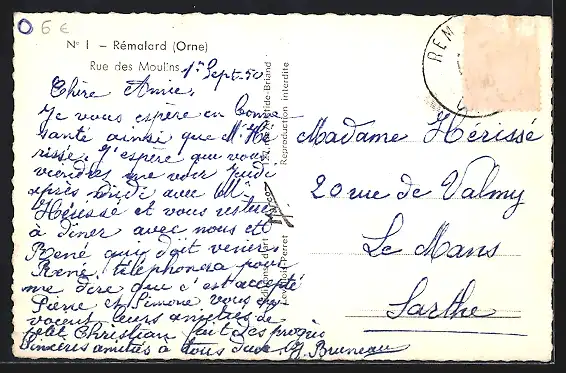 6 €
N° 1 – Rémalard (Orne)
Rue des Moulins
1er Sept-50
Chère Amie,
Je vous espère en bonne
santé ainsi que Mr Hé-
rissé. J'espère que vous
viendrez me voir Jeudi
après midi avec Mr
Hérissé et vous resterez
à dîner avec nous et
René qui doit venir.
René téléphonera pour
me dire que c'est accepté
Pierre et Simone vous en-
voient leurs amitiés le
petit Christian fait des progrès
Sincères amitiés à tous deux. Bruneau
Reproduction interdite
REM
Madame Hérissé
20 rue de Valmy
Le Mans
Sarthe